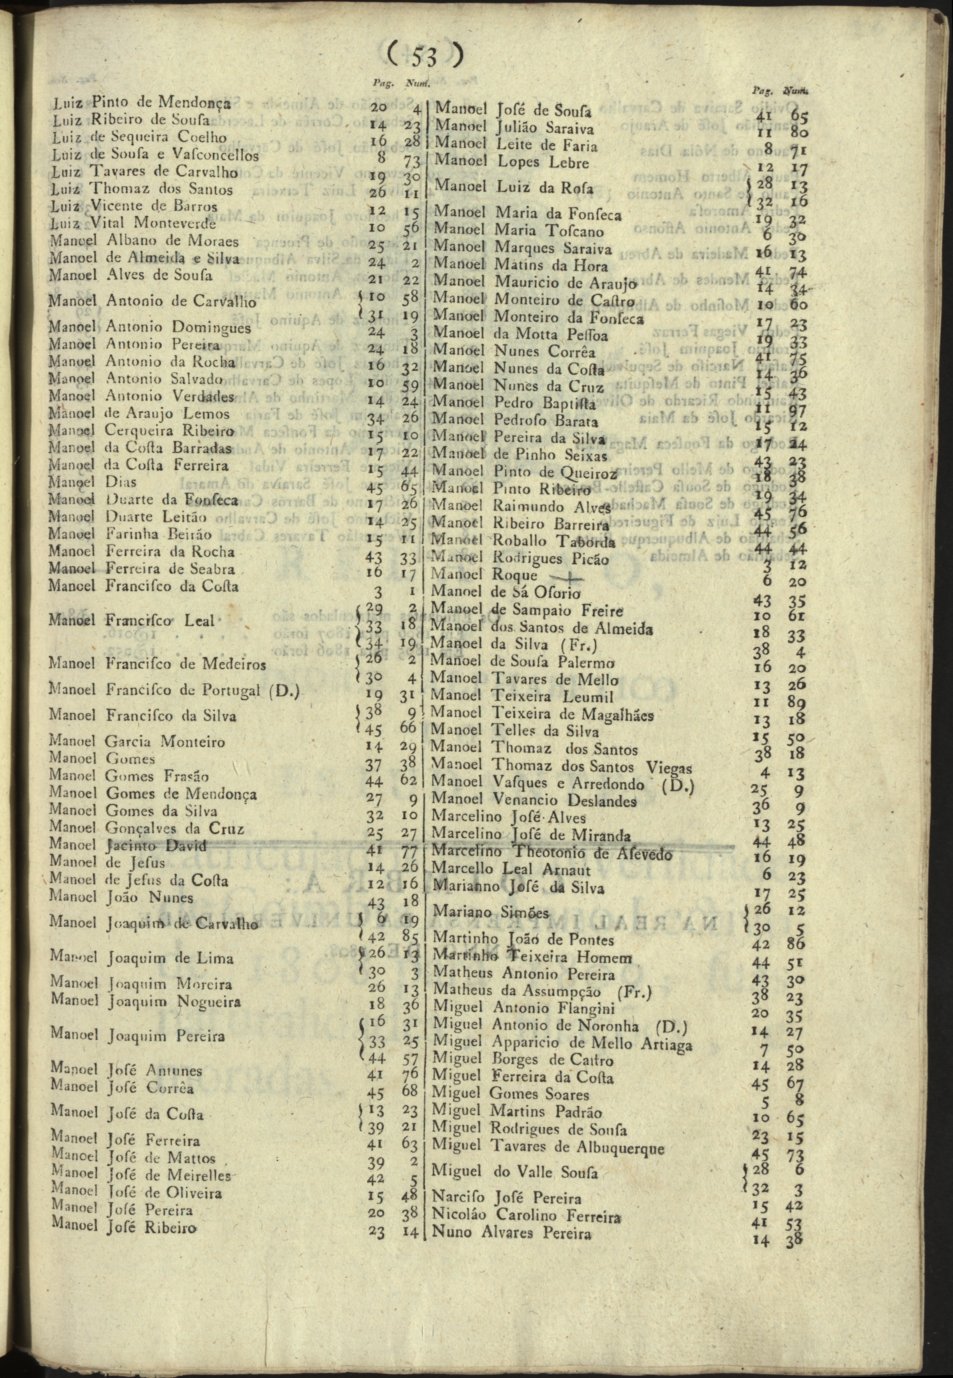 ( 53 )
Pag. Num.
Luiz Pinto de Mendonça 20 4
Luiz Ribeiro de Souſa 14 23
Luiz de Sequeira Coelho 16 28
Luiz de Souſa e Vaſconcellos 8 73
Luiz Tavares de Carvalho 19 30
Luiz Thomaz dos Santos 26 11
Luiz Vicente de Barros 12 15
Luiz Vital Monteverde 10 56
Manoel Albano de Moraes 25 21
Manoel de Almeida e Silva 24 2
Manoel Alves de Souſa 21 22
Manoel Antonio de Carvalho { 10 58
{ 31 19
Manoel Antonio Domingues 24 3
Manoel Antonio Pereira 24 18
Manoel Antonio da Rocha 16 32
Manoel Antonio Salvado 10 59
Manoel Antonio Verdades 14 24
Manoel de Araujo Lemos 34 26
Manoel Cerqueira Ribeiro 15 10
Manoel da Coſta Barradas 17 22
Manoel da Coſta Ferreira 15 44
Manoel Dias 45 65
Manoel Duarte da Fonſeca 17 26
Manoel Duarte Leitão 14 25
Manoel Farinha Beirão 15 11
Manoel Ferreira da Rocha 43 33
Manoel Ferreira de Seabra 16 17
Manoel Franciſco da Coſta 3 1
{ 29 2
Manoel Franciſco Leal { 33 18
{ 34 19
Manoel Franciſco de Medeiros { 26 2
{ 30 4
Manoel Franciſco de Portugal (D.) 19 31
Manoel Franciſco da Silva { 38 9
{ 45 66
Manoel Garcia Monteiro 14 29
Manoel Gomes 37 38
Manoel Gomes Fraſão 44 62
Manoel Gomes de Mendonça 27 9
Manoel Gomes da Silva 32 10
Manoel Gonçalves da Cruz 25 27
Manoel Jacinto David 41 77
Manoel de Jeſus 14 26
Manoel de Jeſus da Coſta 12 16
Manoel João Nunes 43 18
Manoel Joaquim de Carvalho { 6 19
{ 42 85
Manoel Joaquim de Lima { 26 13
{ 30 3
Manoel Joaquim Moreira 26 13
Manoel Joaquim Nogueira 18 36
{ 16 31
Manoel Joaquim Pereira { 33 25
{ 44 57
Manoel Joſé Antunes 41 76
Manoel Joſé Corrêa 45 68
Manoel Joſé da Coſta { 13 23
{ 39 21
Manoel Joſé Ferreira 41 63
Manoel Joſé de Mattos 39 2
Manoel Joſé de Meirelles 42 5
Manoel Joſé de Oliveira 15 48
Manoel Joſé Pereira 20 38
Manoel Joſé Ribeiro 23 14
Pag. Num.
Manoel Joſé de Souſa 41 65
Manoel Julião Saraiva 11 80
Manoel Leite de Faria 8 71
Manoel Lopes Lebre 12 17
Manoel Luiz da Roſa { 28 13
{ 32 16
Manoel Maria da Fonſeca 19 32
Manoel Maria Toſcano 6 30
Manoel Marques Saraiva 16 13
Manoel Matins da Hora 41 74
Manoel Mauricio de Araujo 14 34
Manoel Monteiro de Caſtro 10 60
Manoel Monteiro da Fonſeca 17 23
Manoel da Motta Peſſoa 19 33
Manoel Nunes Corrêa 41 75
Manoel Nunes da Coſta 14 36
Manoel Nunes da Cruz 15 43
Manoel Pedro Baptiſta 11 97
Manoel Pedroſo Barata 15 12
Manoel Pereira da Silva 17 24
Manoel de Pinho Seixas 43 23
Manoel Pinto de Queiroz 18 38
Manoel Pinto Ribeiro 19 34
Manoel Raimundo Alves 45 76
Manoel Ribeiro Barreira 44 56
Manoel Roballo Taborda 44 44
Manoel Rodrigues Picão 3 12
Manoel Roque 6 20
Manoel de Sá Oſorio 43 35
Manoel de Sampaio Freire 10 61
Manoel dos Santos de Almeida 18 33
Manoel da Silva (Fr.) 38 4
Manoel de Souſa Palermo 16 20
Manoel Tavares de Mello 13 26
Manoel Teixeira Leumil 11 89
Manoel Teixeira de Magalhães 13 18
Manoel Telles da Silva 15 50
Manoel Thomaz dos Santos 38 18
Manoel Thomaz dos Santos Viegas 4 13
Manoel Vaſques e Arredondo (D.) 25 9
Manoel Venancio Deslandes 36 9
Marcelino Joſé Alves 13 25
Marcelino Joſé de Miranda 44 48
Marcelino Theotonio de Aſevedo 16 19
Marcello Leal Arnaut 6 23
Marianno Joſé da Silva 17 25
Mariano Simões { 26 12
{ 30 5
Martinho João de Pontes 42 86
Martinho Teixeira Homem 44 51
Matheus Antonio Pereira 43 30
Matheus da Assumpção (Fr.) 38 23
Miguel Antonio Flangini 20 35
Miguel Antonio de Noronha (D.) 14 27
Miguel Apparicio de Mello Artiaga 7 50
Miguel Borges de Caſtro 14 28
Miguel Ferreira da Coſta 45 67
Miguel Gomes Soares 5 8
Miguel Martins Padrão 10 65
Miguel Rodrigues de Souſa 23 15
Miguel Tavares de Albuquerque 45 73
Miguel do Valle Souſa { 28 6
{ 32 3
Narciſo Joſé Pereira 15 42
Nicoláo Carolino Ferreira 41 53
Nuno Alvares Pereira 14 38